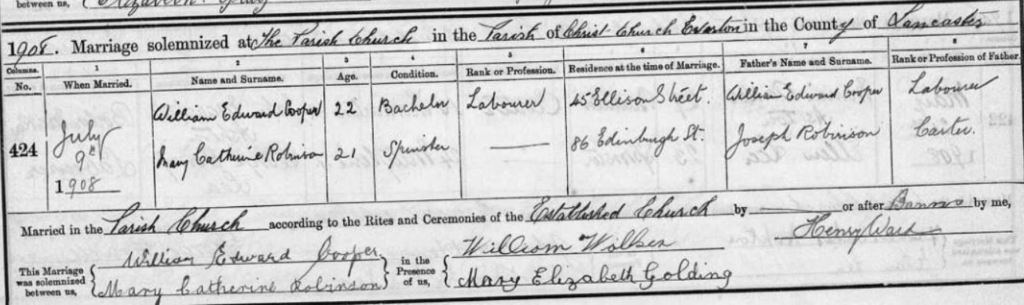 between us,
1908. Marriage solemnized at The Parish Church in the Parish of Christ Church Everton in the County of Lancaster
Columns. 1 2 3 4 5 6 7 8
No. When Married. Name and Surname. Age. Condition. Rank or Profession. Residence at the time of Marriage. Father's Name and Surname. Rank or Profession of Father.
William Edward Cooper 22 Bachelor Labourer 45 Ellison Street. William Edward Cooper Labourer
424 July 9th 1908
Mary Catherine Robinson 21 Spinster 86 Edinburgh St. Joseph Robinson Carter.
Married in the Parish Church according to the Rites and Ceremonies of the Established Church by or after Banns by me,
Henry Ward
This Marriage was solemnized between us, William Edward Cooper in the Presence of us, William Walker
Mary Catherine Robinson Mary Elizabeth Golding